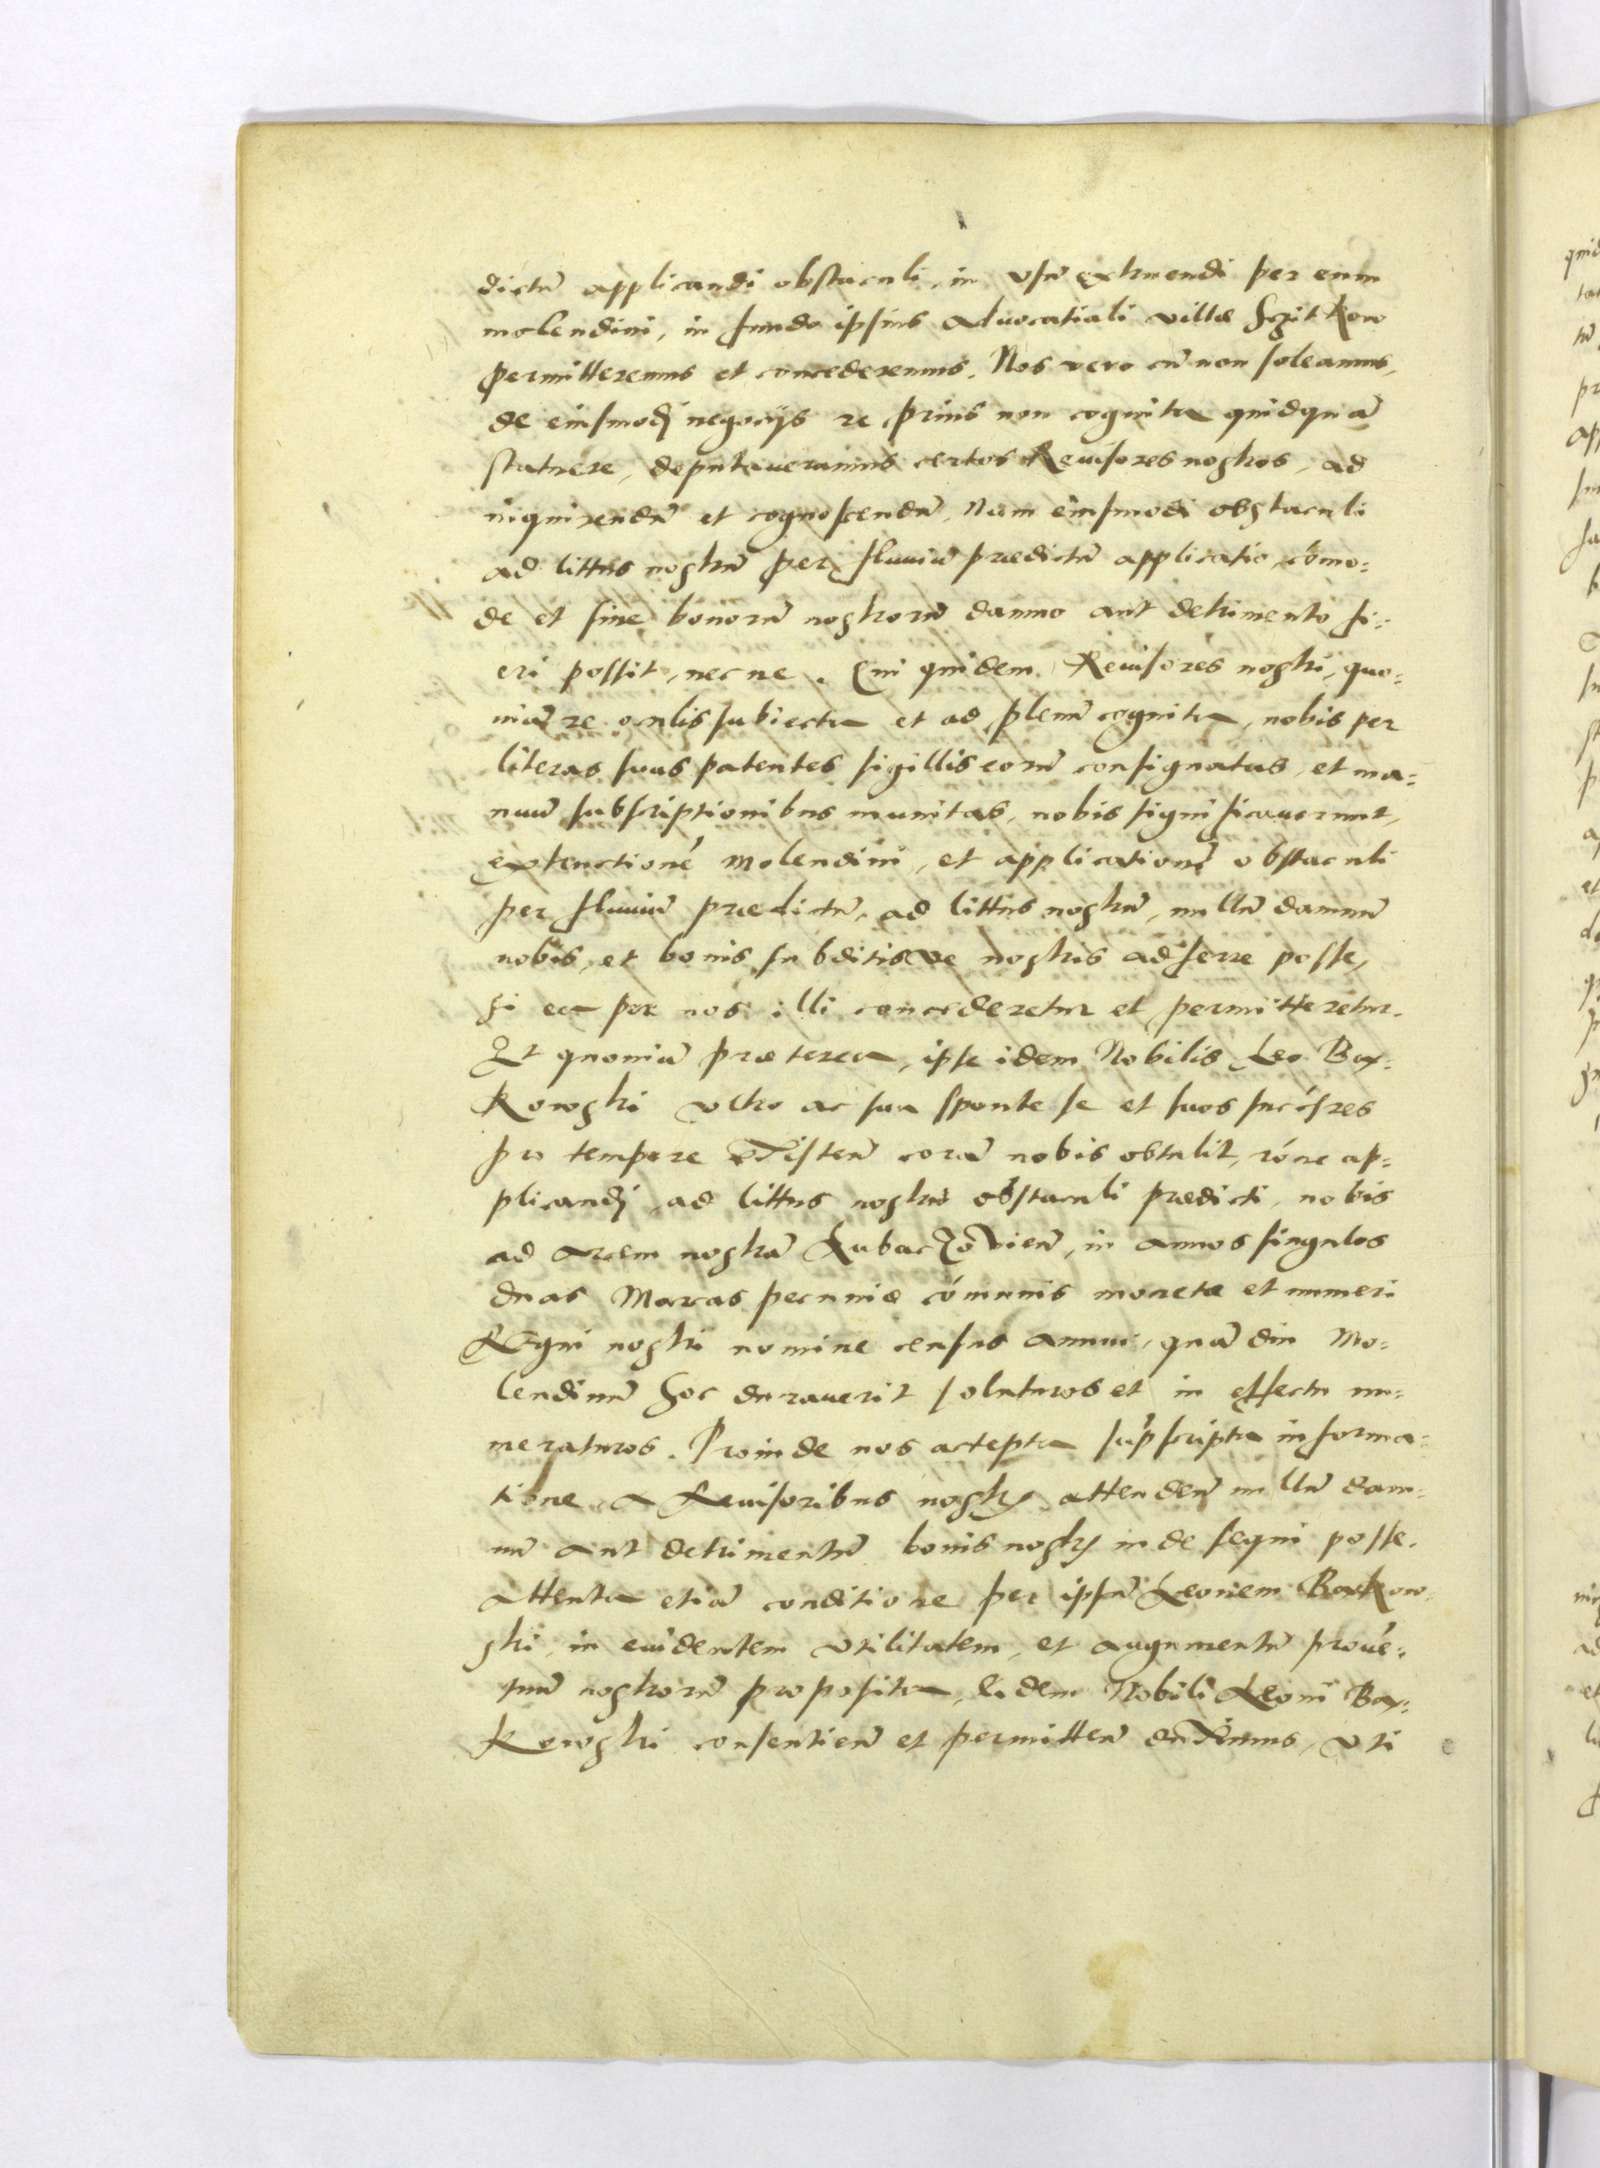 dictū applicandi obstaculi, in usū extruendi per eum
molendini, in fundo ipsius advocatiali villæ Szczitkow
permitteremus et concederemus. Nos vero cū non soleamus,
de eiusmodj negocijs re prius non cognita quidquā
statuere, deputaveramus certos Revisores nostros, ad
inquirendū et cognoscendū. Num eiusmodi obstaculi
ad littus nostrū per fluviū prædictū applicatio, cōmo=
de et sine bonorū nostrorū damno aut detrimento fi=
eri possit, nec ne. Qui quidem Revisores nostri, quo=
niā re oculis subiecta et ad plenū cognita, nobis per
literas suas patentes sigillis eorū consignatas, et ma=
nuū subscriptionibus munitas, nobis significaverunt,
extructionē Molendini, et applicationē obstaculi
per fluviū prædictū, ad littus nostrū, nullū damnū
nobis, et bonis subditisve nostris adferre posse,
si ea per nos illi concederetur et permitteretur.
Et quoniā præterea, ipse idem Nobilis Leo Bar=
kowski ultro ac sua sponte se et suos succ̄sres
pro tempore exīsten̄ corā nobis obtulit, rōne ap=
plicandj ad littus nostrū obstaculi prædicti, nobis
ad arcem nostrā Lubaczovien̄, in annos singulos
duas Marcas pecuniæ cōmunis monetæ et numeri
Regni nostri nomine census annui, quā diu Mo=
lendinū hoc duraverit soluturos et in effectu nu=
meraturos. Proinde nos accepta supscripta informa=
tione, a Revisoribus nostrj, attenden̄ nullū dam=
nū aut detrimentū bonis nostrj inde sequi posse.
attenta etiā conditione per ipsū Leonem Barkow
ski, in evidentem utilitatem, et augumentū prove=
tuū nostrorū proposita, Eidem Nobili Leoni Bar=
kowski consentien̄ et permitten̄ duximus, uti